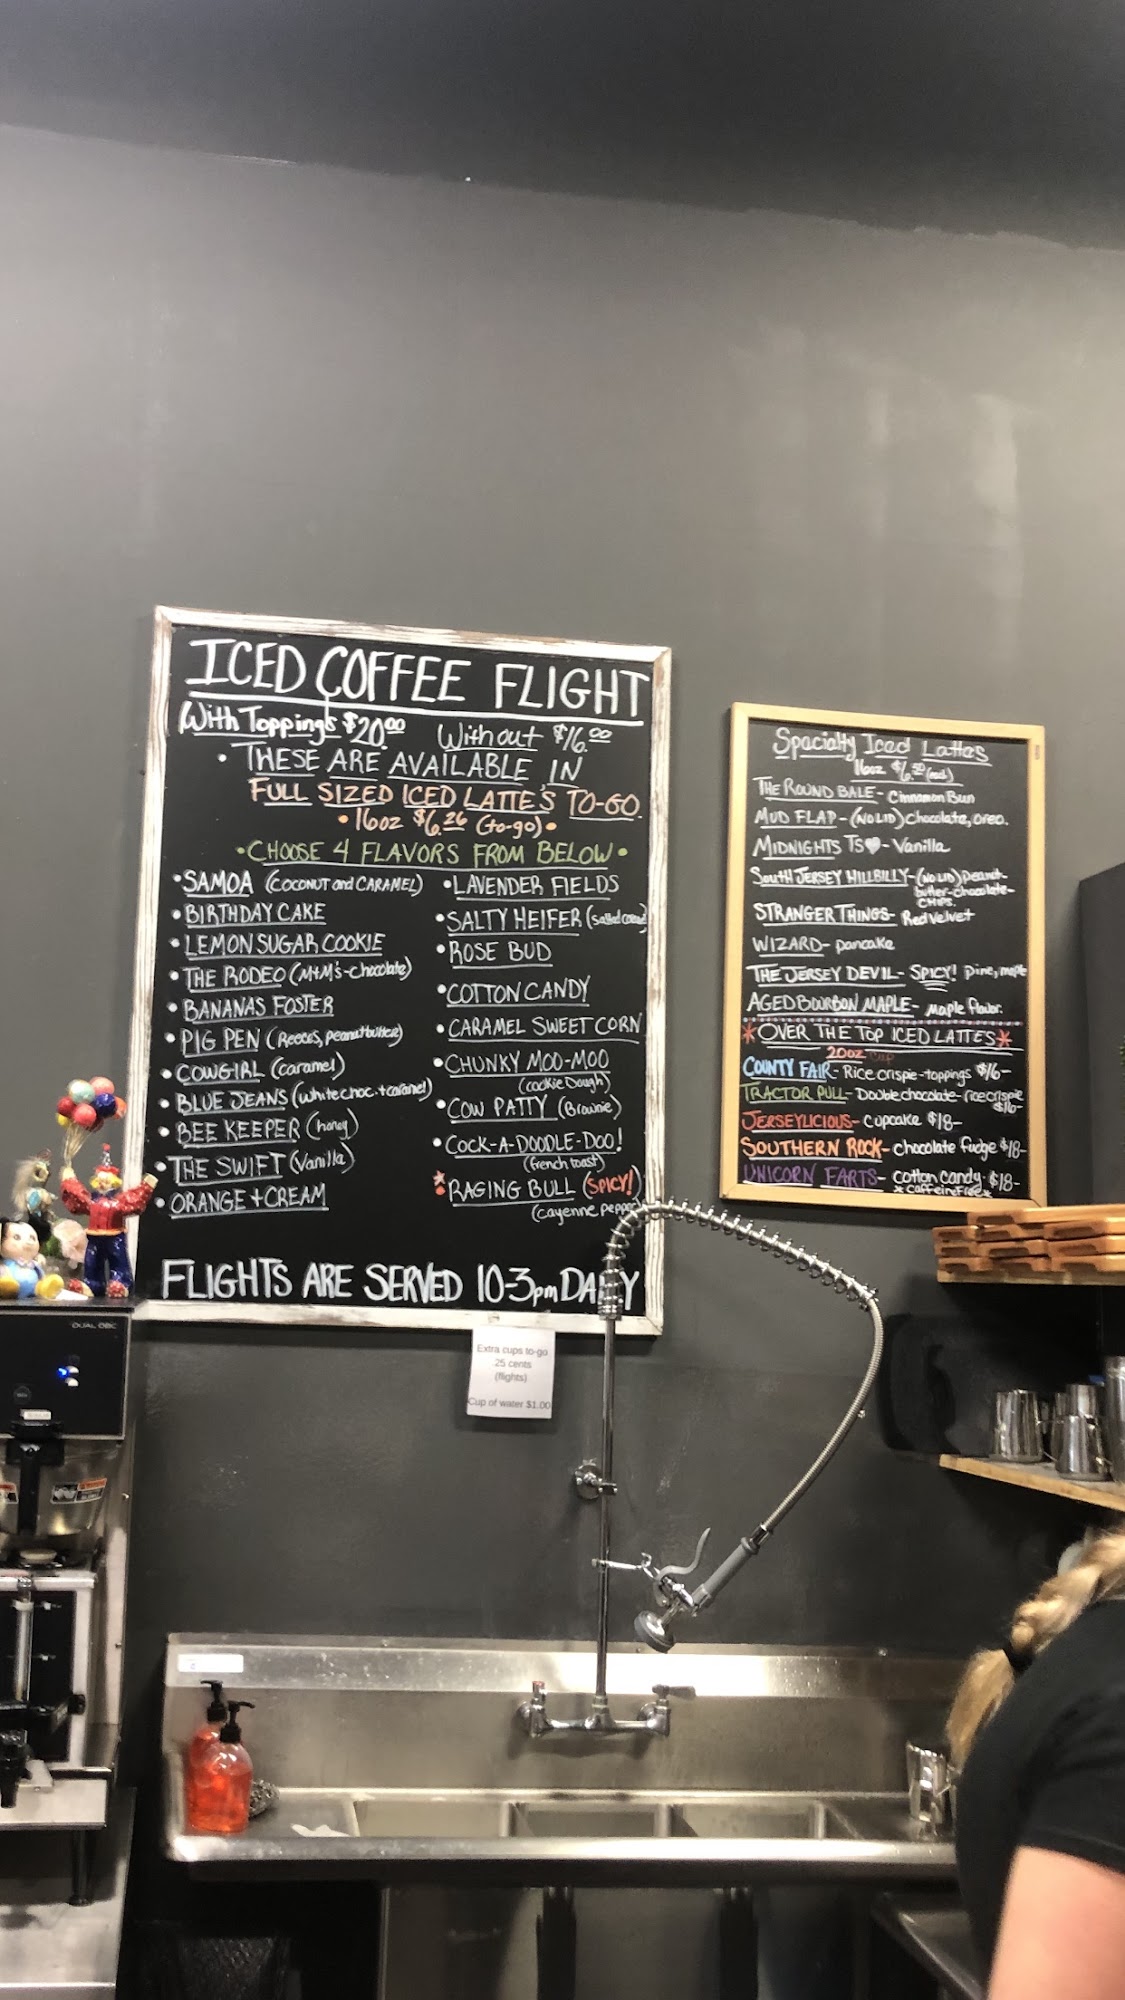 ICED COFFEE FLIGHT
With Toppings $20.00 Without $16.00
• THESE ARE AVAILABLE IN
FULL SIZED ICED LATTE'S TO-GO.
• 16oz $6.26 (to-go) •
• CHOOSE 4 FLAVORS FROM BELOW •
• SAMOA (COCONUT and CARAMEL)
• BIRTHDAY CAKE
• LEMON SUGAR COOKIE
• THE RODEO (M+M's-chocolate)
• BANANAS FOSTER
• PIG PEN (Reeces, peanutbutter)
• COWGIRL (caramel)
• BLUE JEANS (white choc.+caramel)
• BEE KEEPER (honey)
• THE SWIFT (Vanilla)
• ORANGE + CREAM
• LAVENDER FIELDS
• SALTY HEIFER (salted
• ROSE BUD
• COTTON CANDY
• CARAMEL SWEET CORN
• CHUNKY MOO-MOO
(cookie Dough)
• COW PATTY (Brownie)
• COCK-A-DOODLE-DOO!
(french toast)
* RAGING BULL (SPICY!)
(cayenne pepper)
FLIGHTS ARE SERVED 10-3pm DAILY
Extra cups to-go
25 cents
(flights)
Cup of water $1.00
Specialty Iced Lattes
16oz $6.50
THE ROUND BALE - Cinnamon Bun
MUD FLAP - (NO LID) chocolate, oreo.
MIDNIGHTS TS♥ - Vanilla
SOUTH JERSEY HILLBILLY - (NO LID) peanut-
butter-chocolate-
CHIPS.
STRANGER THINGS - Red Velvet
WIZARD - pancake
THE JERSEY DEVIL - SPICY! pine, maple
AGED BOURBON MAPLE - maple flavor.
* OVER THE TOP ICED LATTES *
20oz cup
COUNTY FAIR - Rice crispie-toppings $16-
TRACTOR PULL - Double chocolate-rice crispie
$16-
JERSEYLICIOUS - cupcake $18-
SOUTHERN ROCK - chocolate fudge $18-
UNICORN FARTS - cotton candy - $18-
* Caffeine Free *
DUAL DBC